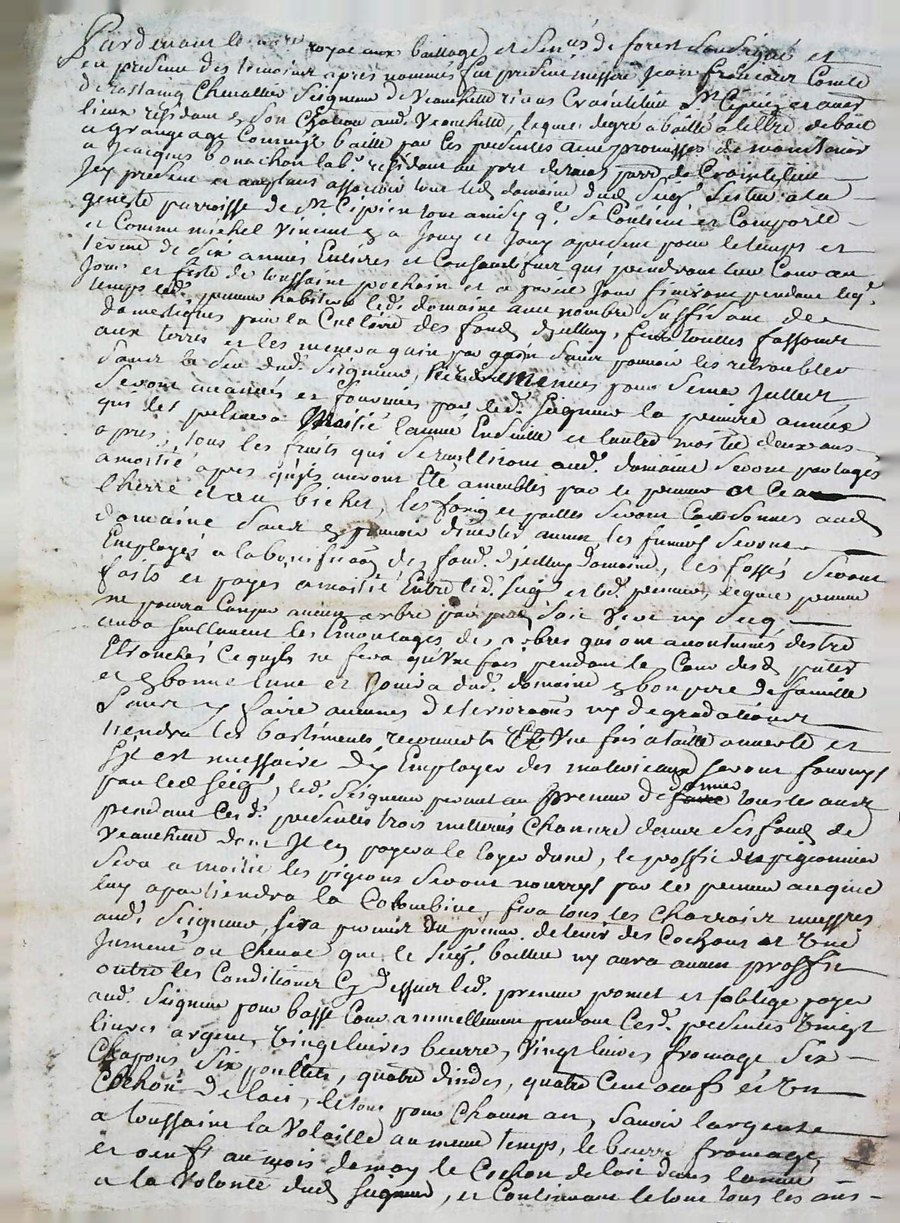 Pardevant le no.re royal aux baillage et Sen.ée de forest Soussigné et
en presence des temoins apres nommés fut present messire Jean francois Comte
de rostaing Chevallier Seigneur de Veauchette rivas Craintilieu St Ciprien et autres
lieux residant en son Chateau aud. Veauchette, lequel degré a baillé a tiltre de bail
a grangeage Comme il baille par les presentes avec promesse de maintenir
a Jacques bonachon lab.r residant au port de rivas par.se de Craintilieu
Icy present et acceptant assavoir tout led. domaine dud. Seig.r Sis au lieu
geneste parroisse de St Ciprien tout ainsy q.l Se Contient et Comporte
et Comme michel Vincent en a Jouy et Jouy apresent pour le temps et
terme de Six années Entieres et Consecutives qui prendront leur Cour au
Jour et feste de toussaint prochain et a pareil Jour finiront pendant leq.l
temps led. preneur habitera led. domaine avec nombre Suffisant de
domestiques pour la Culture des fonds d'Jcelluy, fera touttes fassons
aux terres et les menera gain par gain Sans pouvoir les retroubler
Sans le Seu dud. Seigneur, les Semences pour Semer Jcelluy
Seront avancés et fournies par led. Seigneur la premiere année
qui les prelevera Moitié lannée Ensuitte et lautre moitié deux ans
apres, tous les fruits qui Se recuilliront aud. domaine Seront partagés
a moitié apres quils auront Eté ameublés par le preneur et Ce a
lherre et au bichet, les foins et pailles Seront Consommés aud.
domaine Sans en pouvoir divertir aucun, les fumiers Seront
Employés a la bonification des fonds d'jcelluy domaine, les fossés Seront
faits et payés a moitié Entre led. Seig.r et led. preneur, lequel preneur
ne pourra Couper aucun arbre par pied Soit Vert ny Secq
aura Seullement les Emontages des arbres qui ont accoutumés destre
Etronchés Ce quils ne fera qu'Vne fois pendant le Cour desd. presentes
et en bonne lune et Jouira dud. domaine en bon pere de famille
Sans y faire aucunes deteriorations ny degradations
tiendra les bastiments recouverts Vne fois a taille ouverte et
Sil est necessaire d'y Employer des materiaux Seront fournys
par led Seig.r, led. Seigneur promet au preneur de donner tous les ans
pendant Ces d. presentes trois metterées Chanvre dans Ses fonds de
Veauchette dont Jl en payera le loyer dune, le proffit du pigeonnier
Sera a moitié les pigeons Seront nourrys par le preneur auquel
luy apartiendra la Colombine, fera tous les Charrois necess.res
aud. Seigneur, Sera permis au preneur de tenir des Cochons et Une
Jument ou Cheval que le Seig.r bailleur ny aura aucun proffit
outre les Conditions Cy dessus led. preneur promet et Soblige payer
aud. Seigneur pour basse Cour annuellement pendant Ces d. presentes Vingt
livres argent, Vingt livres beurre, Vingt livres fromage Six
Chapons, Six poullets, quatre dindes, quatre Cent oeufs et Un
Cochon de lait, le tout pour Chacun an, Savoir largent
a toussaint la Volaille au meme temps, le beurre fromage
et oeufs au mois de may le Cochon de lait dans lannée
a la Volonté dud. Seigneur, et Continuant le tout tous les ans